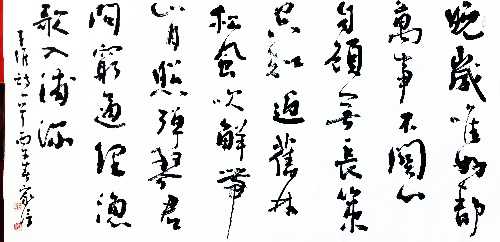 晚歲唯好靜
萬事不關心
自顧無長策
空知返舊林
松風吹解帶
山月照彈琴君
問窮通理漁
歌入浦深
王維詩一首